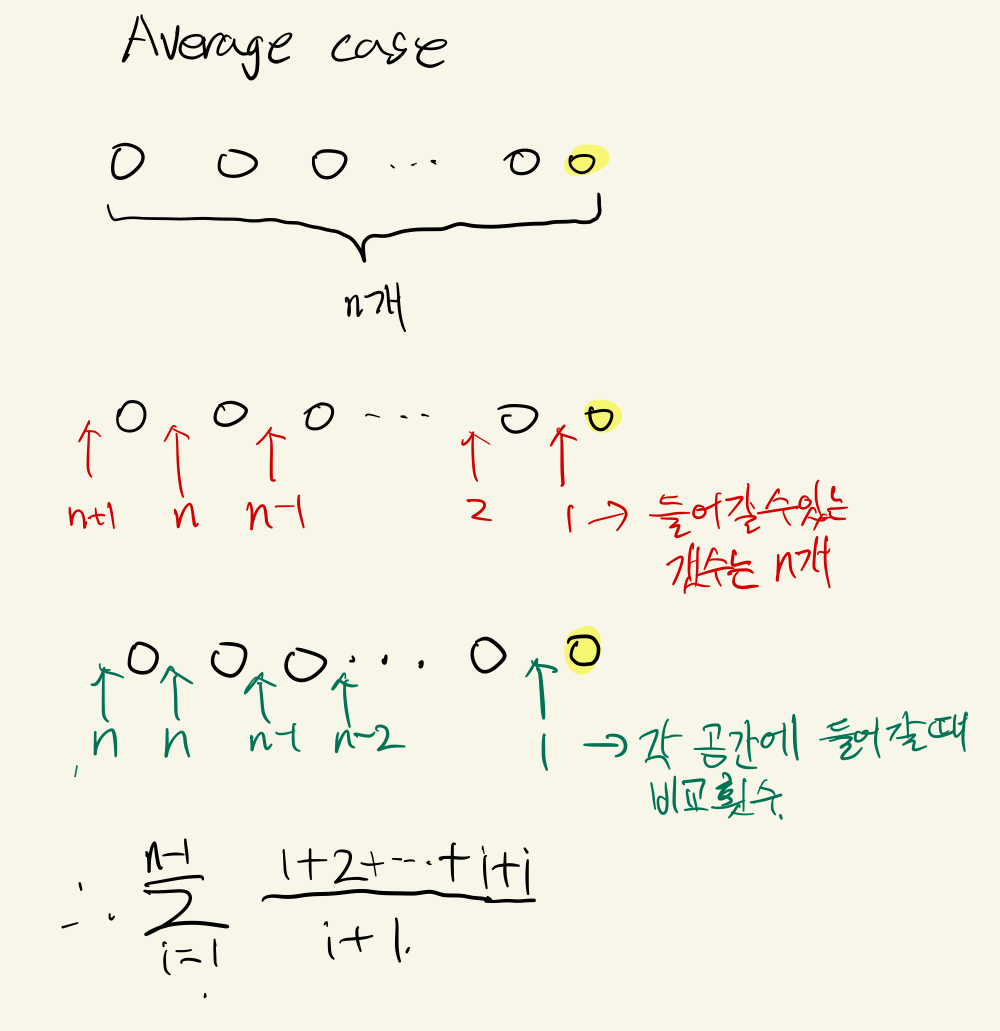 Average case
O O O ... O O
n개
O O O ... O O
n+1 n n-1 2 1 → 들어갈 수 있는
갯수는 n개
O O O ... O O
n n n-1 n-2 1 → 각 공간에 들어갈 때
비교횟수.
n-1 1+2+...+i+i
∴ Σ
i=1 i+1.